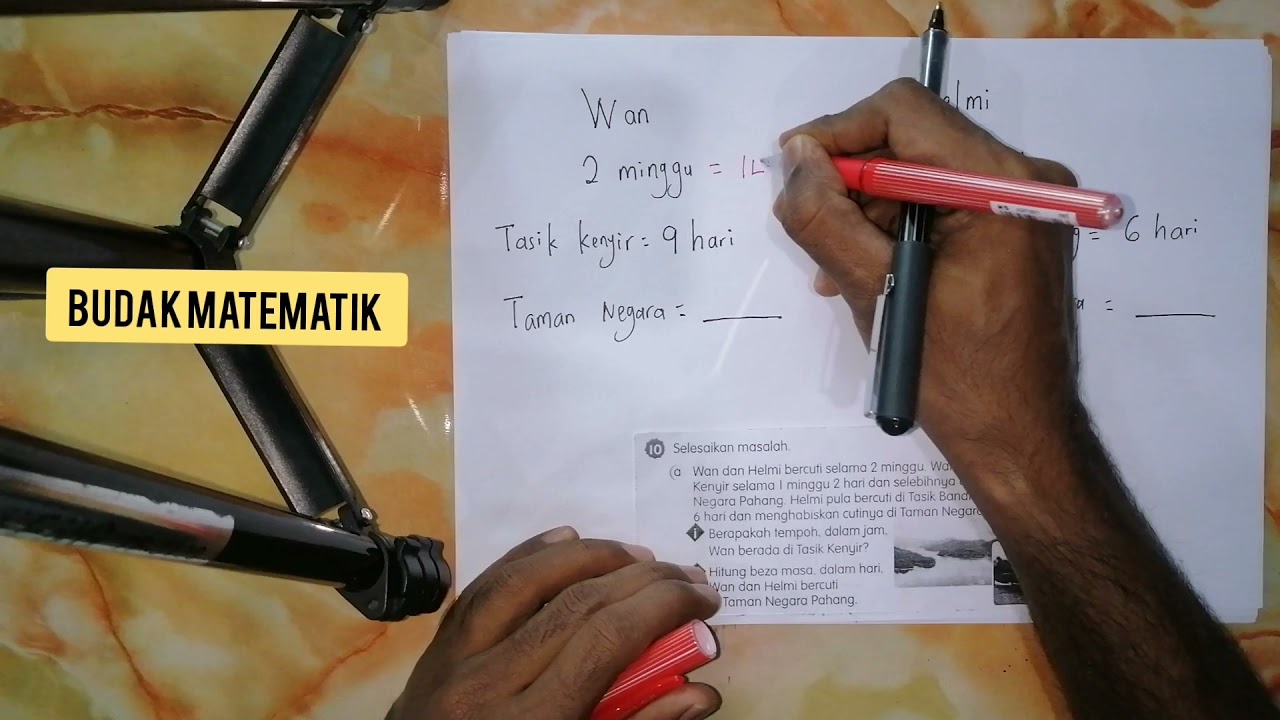 Wan
2 minggu =
Tasik Kenyir = 9 hari
6 hari
Taman Negara =
=
BUDAK MATEMATIK
10 Selesaikan masalah.
(a Wan dan Helmi bercuti selama 2 minggu.
Kenyir selama 1 minggu 2 hari dan selebihnya
Negara Pahang. Helmi pula bercuti di Tasik
6 hari dan menghabiskan cutinya di Taman
i Berapakah tempoh, dalam jam,
Wan berada di Tasik Kenyir?
Hitung beza masa, dalam hari,
Wan dan Helmi bercuti
Taman Negara Pahang.